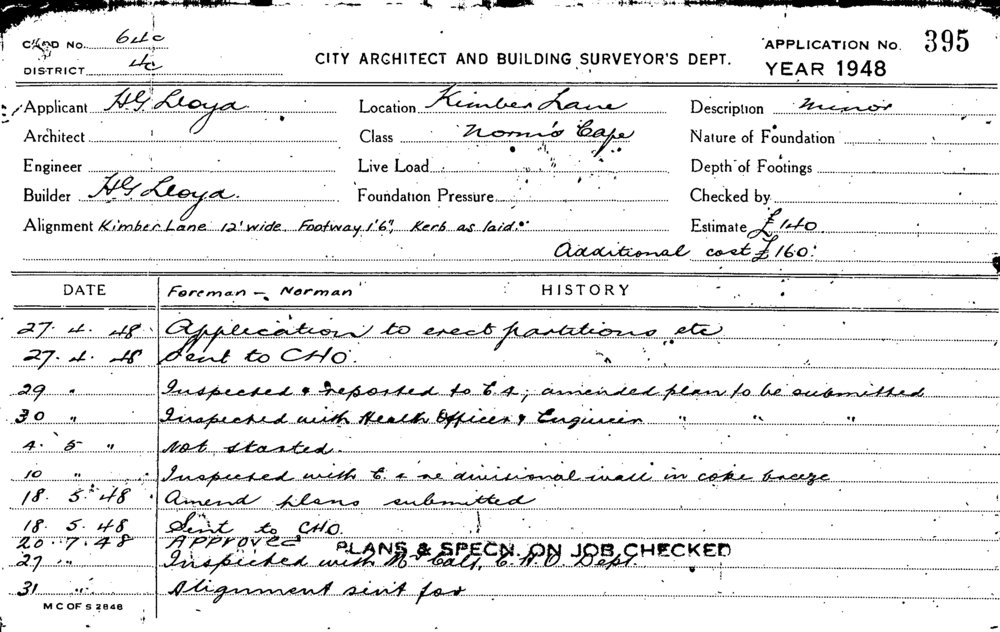 CARD No. 64c
DISTRICT 4c
CITY ARCHITECT AND BUILDING SURVEYOR'S DEPT.
APPLICATION No. 395
YEAR 1948
Applicant HG Lloyd Location Kimber Lane Description Minor
Architect Class Norm's Cafe Nature of Foundation
Engineer Live Load Depth of Footings
Builder HG Lloyd. Foundation Pressure Checked by
Alignment Kimber Lane 12' wide. Footway 1'6", Kerb as laid. Estimate £140
Additional cost £160.
DATE Foreman - Norman HISTORY
27. 4. 48. Application to erect partitions etc
27. 4. 48 Sent to CHO.
29 " Inspected & reported to C.S; amended plan to be submitted
30 " Inspected with Health Officer & Engineer " " "
4. 5 " Not started.
10 " Inspected with re divisional wall in coke breeze
18. 5. 48 Amend plans submitted
18. 5. 48 Sent to CHO.
20. 7. 48 APPROVED PLANS & SPECN. ON JOB CHECKED
27 " Inspected with Mr C.H.O. Dept.
31 " Alignment sent for
M C OF S 2848